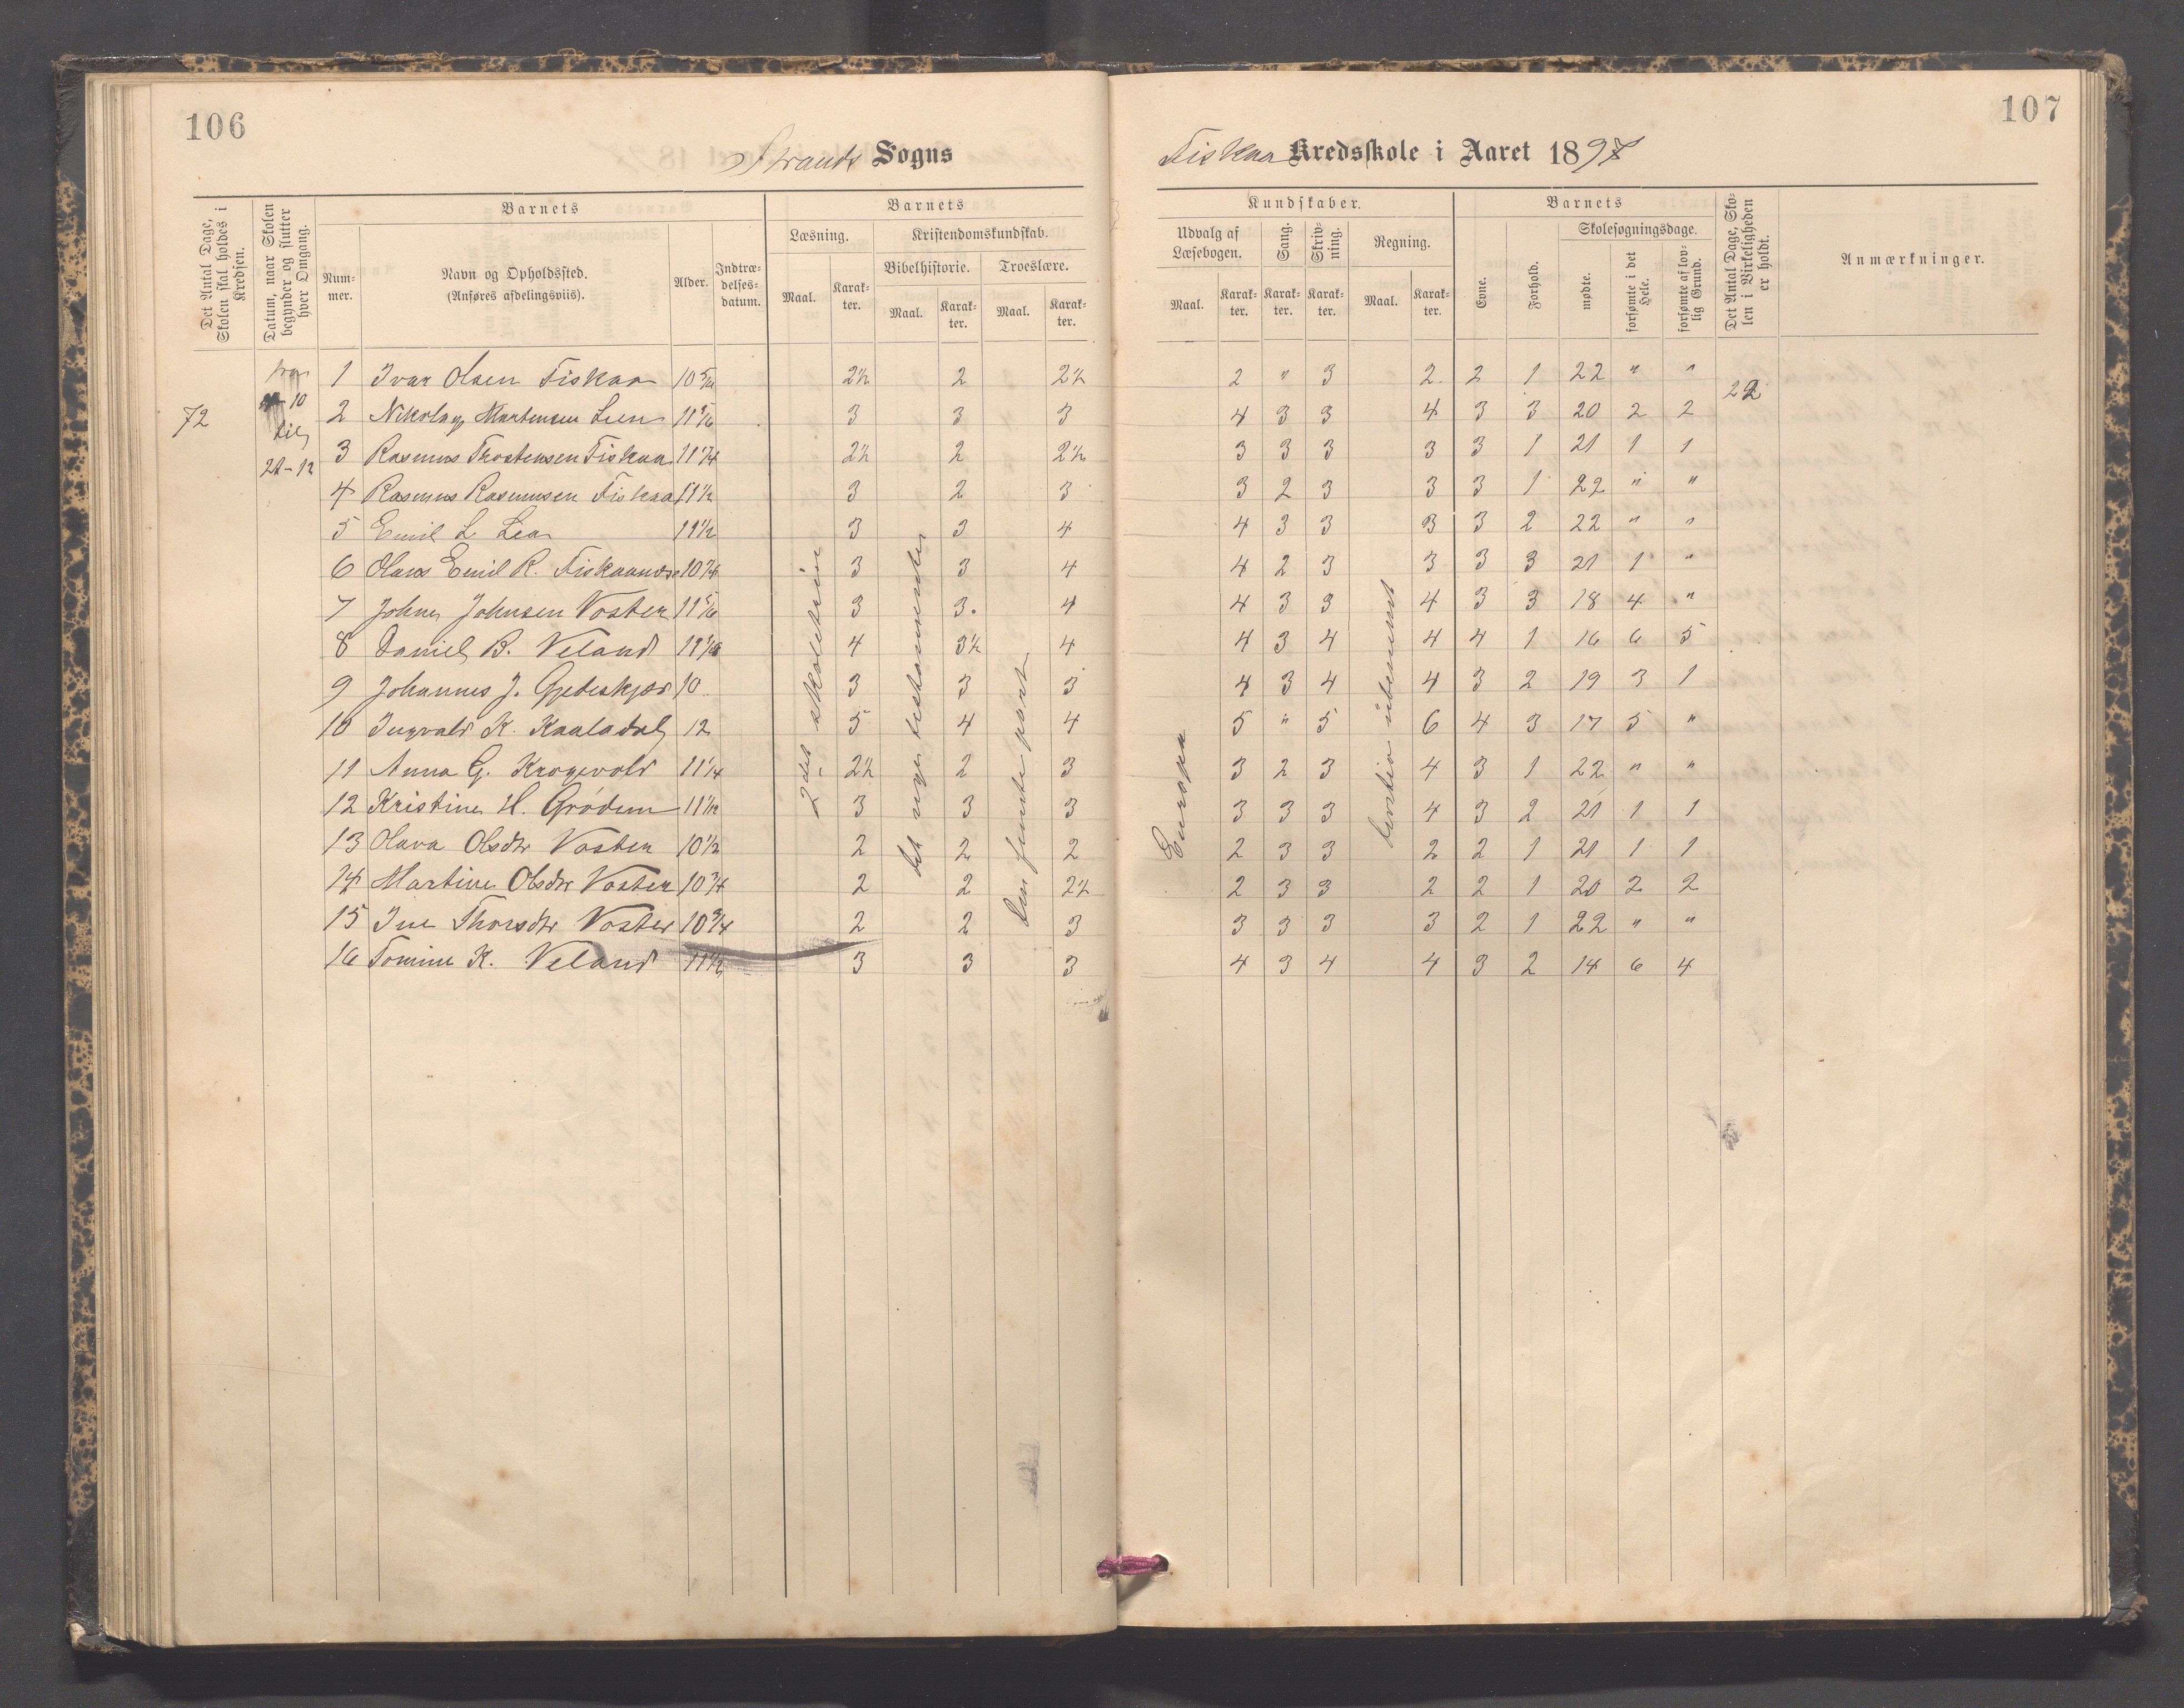 106
107
Strands Sogns
Fiskaa Kredsskole i Aaret 1897
Det Antal Dage, Skolen skal holdes i Kredsen.
Datum, naar Skolen begynder og slutter hver Omgang.
Barnets
Num-
mer.
Navn og Opholdssted.
(Anføres afdelingsviis).
Alder.
Indtræ-
delses-
datum.
Barnets
Læsning.
Maal.
Karak-
ter.
Kristendomskundskab.
Bibelhistorie.
Maal.
Karak-
ter.
Troeslære.
Maal.
Karak-
ter.
Kundskaber.
Udvalg af
Læsebogen.
Maal.
Karak-
ter.
Sang.
Karak-
ter.
Skriv-
ning.
Karak-
ter.
Regning.
Maal.
Karak-
ter.
Barnets
Evne.
Forhold.
Skolesøgningsdage.
mødte.
forsømte i det
Hele.
forsømte af lov-
lig Grund.
Det Antal Dage, Sko-
len i Virkeligheden
er holdt.
Anmærkninger.
72
fra
10
til
22-12
22
2det skoletrin
det nye testamente
den femte part
Europa
1 Ivar Olsen Fiskaa 2½ 2 2½ 2 " 3 2 2 1 22 " "
2 Nikolay Martensen Lien 3 3 3 4 3 3 4 3 3 20 2 2
3 Rasmus Thostensen Fiskaa 11¼ 2½ 2 2½ 3 3 3 3 3 1 21 1 1
4 Rasmus Rasmussen Fiskaa 11½ 3 2 3 3 2 3 3 3 1 22 " "
5 Emil L Lea 11½ 3 3 4 4 3 3 3 3 2 22 " "
6 Olaus Emil R. Fiskaanæs 10¾ 3 3 4 4 2 3 3 3 3 21 1 "
7 Johan Johnsen Voster 11⅚ 3 3 4 4 3 3 4 3 3 18 4 "
8 Daniel B. Veland 4 3½ 4 4 3 4 4 4 1 16 6 5
9 Johannes J. Gjedeskjær 10 3 3 3 4 3 4 4 3 2 19 3 1
10 Ingvald K. Kaaladal 12 5 4 4 5 " 5 6 4 3 17 5 "
11 Anna G. Krogevold 11¼ 2½ 2 3 3 2 3 4 3 1 22 " "
12 Kristine H. Grødem 11½ 3 3 3 3 3 3 4 3 2 21 1 1
13 Olava Olsdtr Voster 10½ 2 2 2 2 3 3 2 2 1 21 1 1
14 Martine Olsdtr Voster 10¾ 2 2 2½ 2 3 3 2 2 1 20 2 2
15 Ine Thorsdtr Voster 10¾ 2 2 3 3 3 3 3 2 1 22 " "
16 Tomine K. Veland 11½ 3 3 3 4 3 4 4 3 2 14 6 4